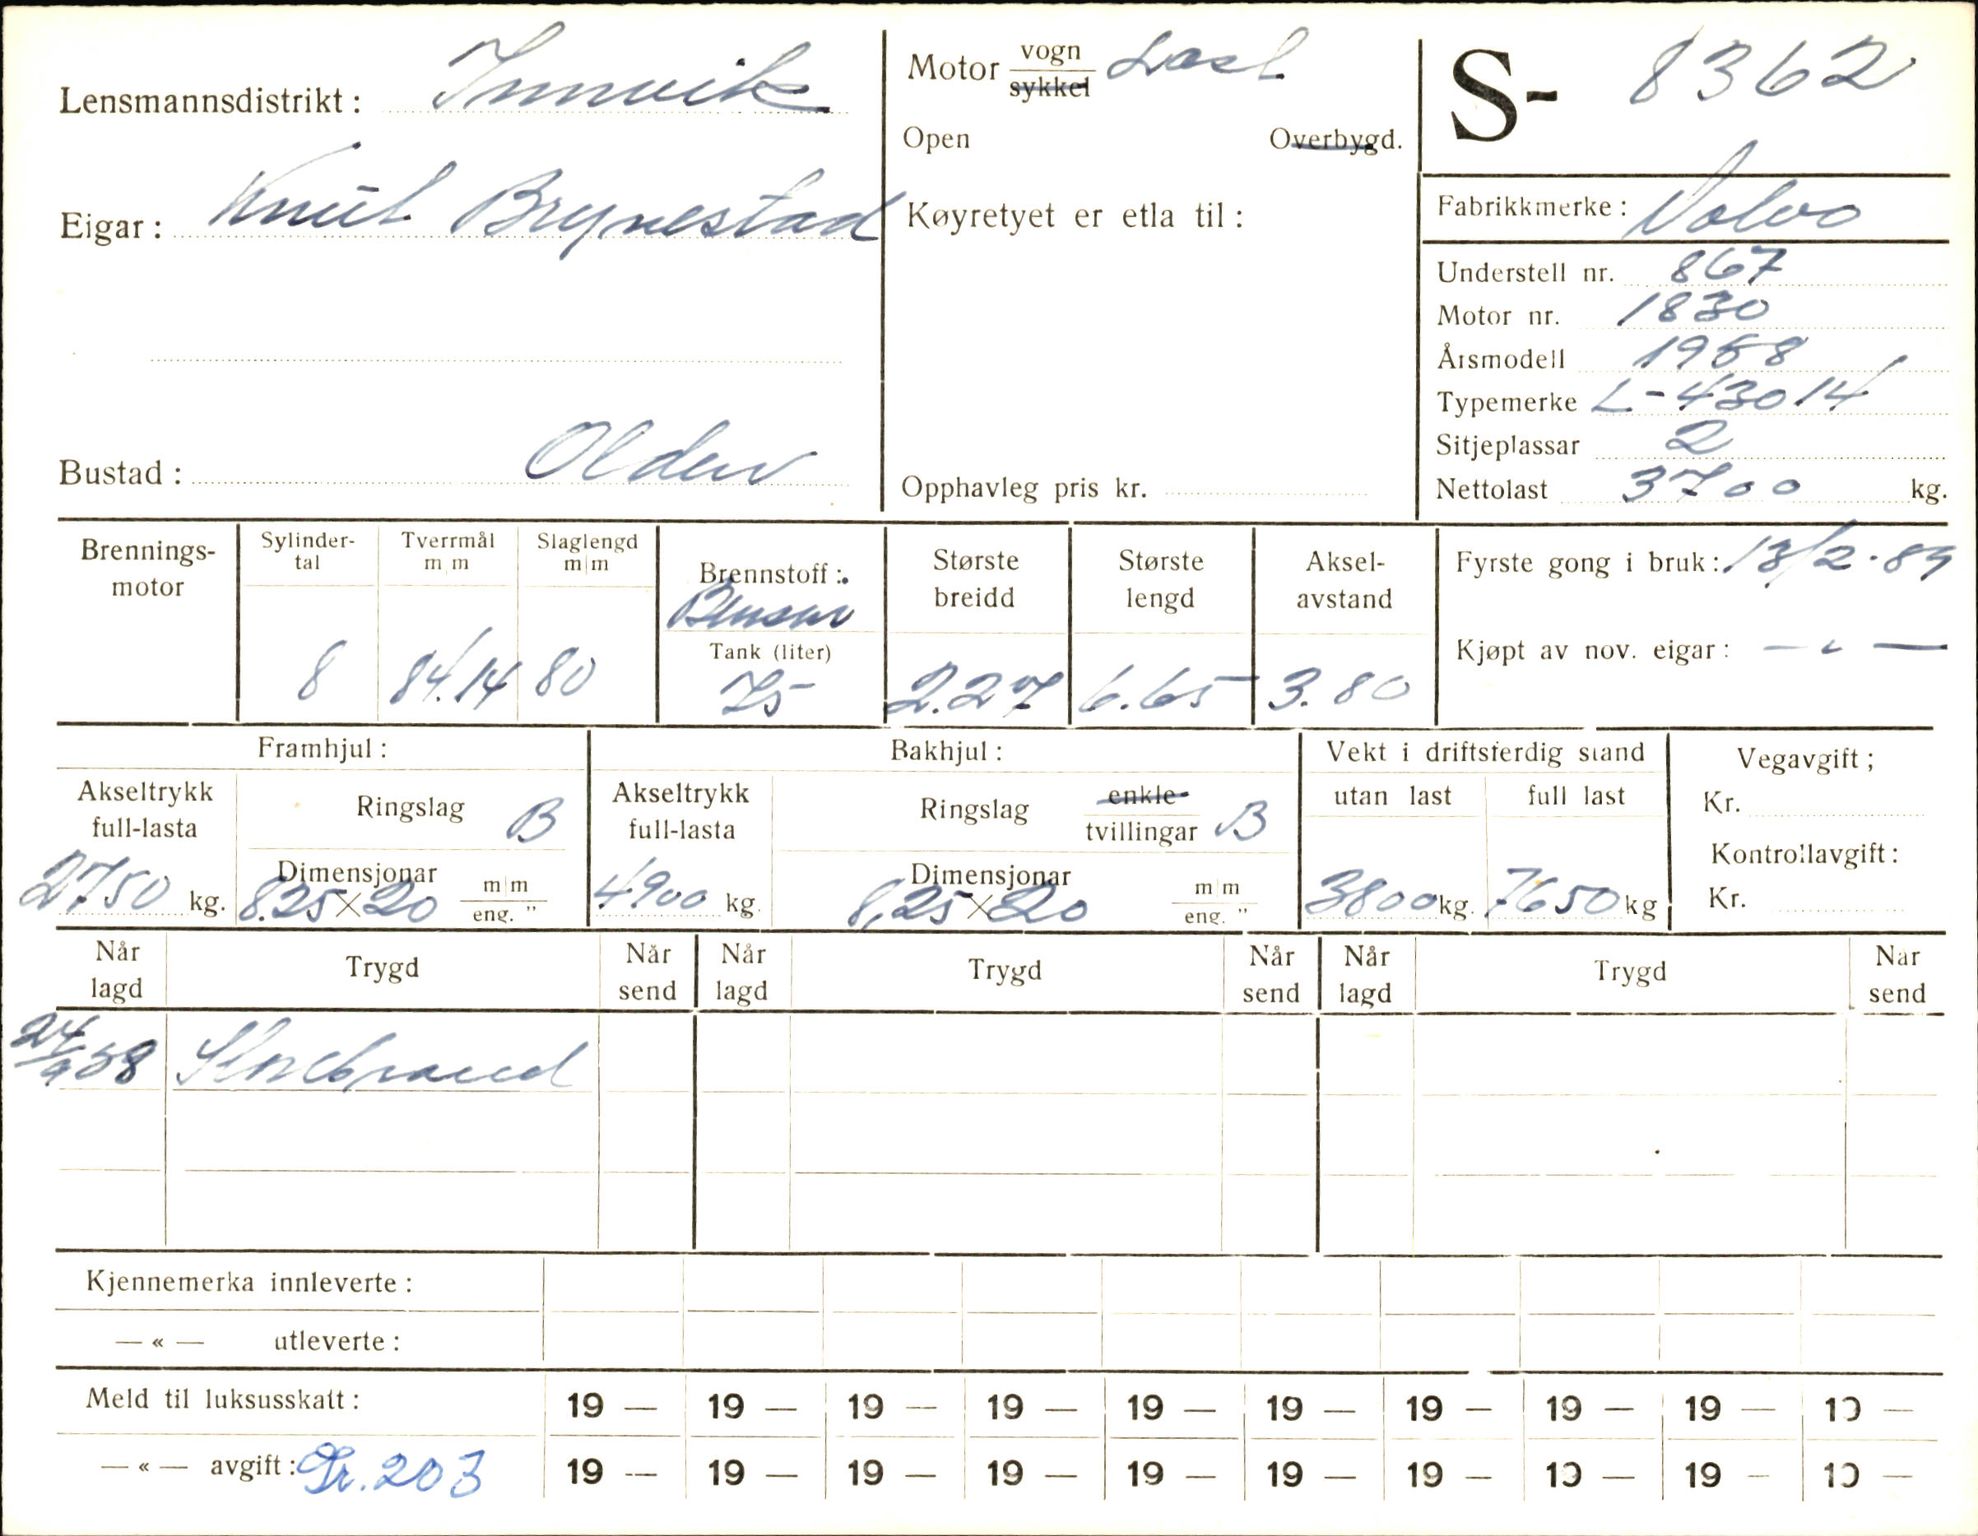 Lensmannsdistrikt: Innvik
Eigar: Knut Brynestad
Bustad: Olden
Motor vogn Last
sykkel
Open Overbygd.
Køyretyet er etla til:
Opphavleg pris kr.
S- 8362
Fabrikkmerke: Volvo
Understell nr. 867
Motor nr. 1830
Årsmodell 1958
Typemerke L-43014
Sitjeplassar 2
Nettolast 3700 kg.
Brennings-
motor
Sylinder-
tal
8
Tverrmål
m m
84.14
Slaglengd
m|m
80
Brennstoff:
Bensin
Tank (liter)
75
Største
breidd
2.27
Største
lengd
6.65
Aksel-
avstand
3.80
Fyrste gong i bruk: 13/2-
Kjøpt av nov. eigar: — " —
Framhjul:
Akseltrykk
full-lasta
2750 kg.
Ringslag B
Dimensjonar
8.25 x 20
m|m
eng. "
Bakhjul:
Akseltrykk
full-lasta
4900 kg.
Ringslag enkle
tvillingar B
Dimensjonar
8,25 x 20
m|m
eng. "
Vekt i driftsferdig stand
utan last full last
3800 kg. 7650 kg
Vegavgift;
Kr.
Kontrollavgift:
Kr.
Når
lagd Trygd Når
send Når
lagd Trygd Når
send Når
lagd Trygd Når
send
24/9 58 Storebrand
Kjennemerka innleverte:
— « — utleverte:
Meld til luksusskatt: 19 — 19 — 19 — 19 — 19 — 19 — 19 — 19 — 19 — 19 —
— « — avgift: Gr. 203 19 — 19 — 19 — 19 — 19 — 19 — 19 — 19 — 19 — 19 —